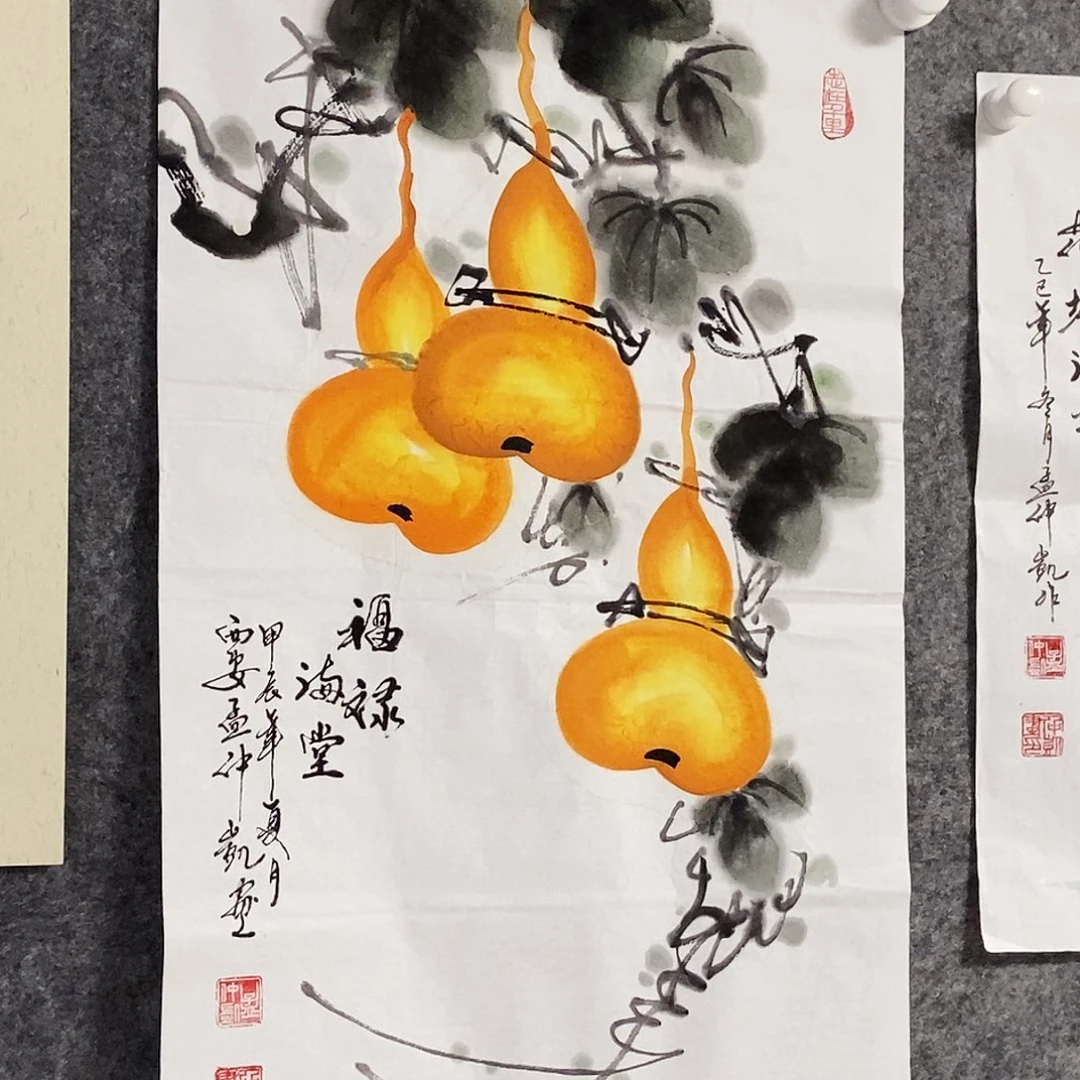 福禄
满堂
甲辰年夏月
西安孟仲凱画
乙巳年冬月孟仲凱作